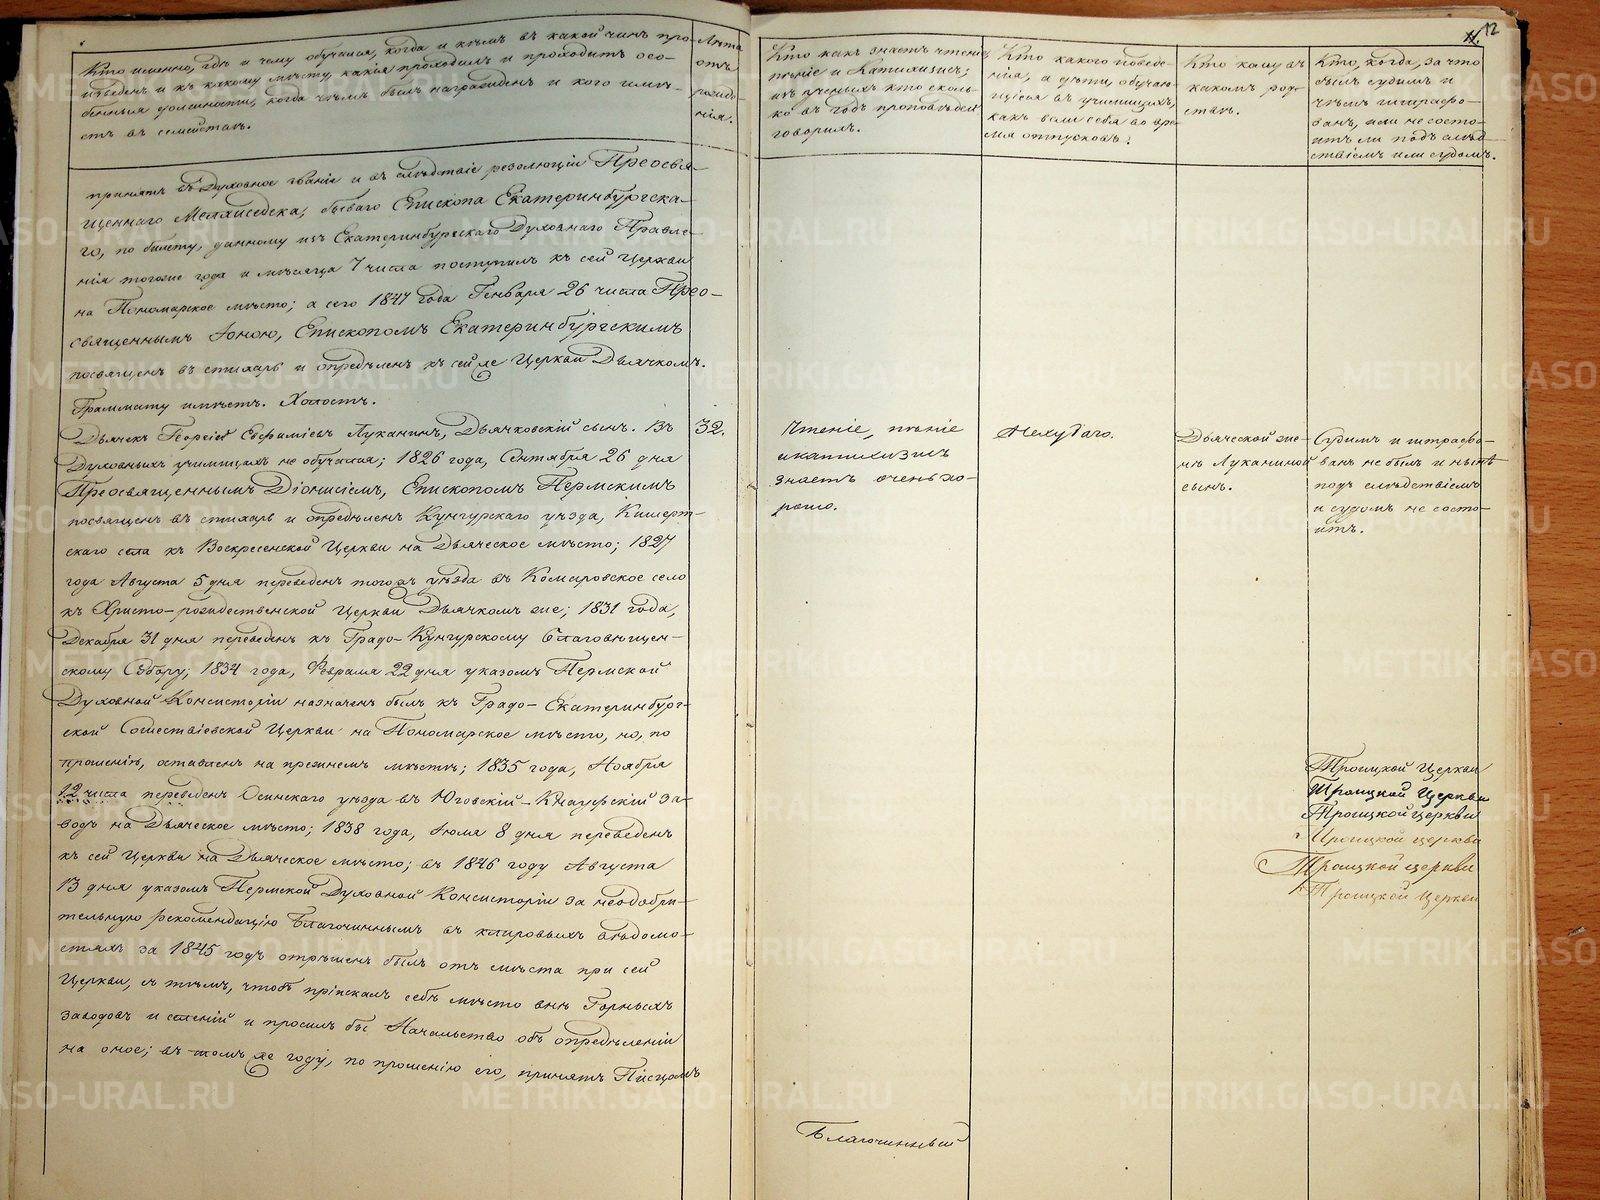 Кто именно, гдѣ и чему обучался, когда и кѣмъ въ какой чинъ про-
изведенъ и къ какому мѣсту, какія проходилъ и проходитъ осо-
бенныя должности, когда чѣмъ былъ награжденъ и кого имѣ-
етъ въ семействѣ.
Лѣта
отъ
рожде-
нія.
принятъ въ Духовное званіе и въ слѣдствіе резолюціи Преосвя-
щеннаго Мелхиседека, бывшаго Епископа Екатеринбургска-
го, по билету, данному изъ Екатеринбургскаго Духовнаго Правле-
нія тогоже года и мѣсяца 7 числа поступилъ къ сей Церкви
на Пономарское мѣсто; а сего 1847 года Генваря 26 числа Прео-
священнымъ Іоною, Епископомъ Екатеринбургскимъ
посвященъ въ стихарь и опредѣленъ къ сей же Церкви Дьячкомъ.
Грамматy имѣетъ. Холостъ.
Дьячекъ Георгій Евфиміевъ Луканинъ, Дьячковскій сынъ. Въ
Духовныхъ училищахъ не обучался; 1826 года, Сентября 26 дня
Преосвященнымъ Діонисіемъ, Епископомъ Пермскимъ
посвященъ въ стихарь и опредѣленъ Кунгурскаго уѣзда, Кишерт-
скаго села къ Воскресенской Церкви на Дьяческое мѣсто; 1827
года Августа 5 дня переведенъ тогожъ уѣзда въ Комаровское село
къ Христо-рождественской Церкви Дьячкомъ же; 1831 года,
Декабря 31 дня переведенъ къ Градо-Кунгурскому Благовѣщен-
скому Собору; 1834 года, Февраля 22 дня указомъ Пермской
Духовной Консисторіи назначенъ былъ къ Градо-Екатеринбург-
ской Сошествіевской Церкви на Пономарское мѣсто, но, по
прошенію, оставленъ на прежнемъ мѣстѣ; 1835 года, Ноября
12 числа переведенъ Осинскаго уѣзда въ Юговскій-Кнауфскій за-
водъ на Дьяческое мѣсто; 1838 года, Іюля 8 дня переведенъ
къ сей Церкви на Дьяческое мѣсто; въ 1846 году Августа
13 дня указомъ Пермской Духовной Консисторіи за неодобри-
тельную рекомендацію Благочиннымъ въ клировыхъ вѣдомо-
стяхъ за 1845 годъ отрѣшенъ былъ отъ мѣста при сей
Церкви, съ тѣмъ, чтобъ пріискалъ себѣ мѣсто внѣ Горныхъ
заводовъ и селеній и просилъ бы Начальство объ опредѣленіи
на оное; въ томъ же году, по прошенію его, принятъ Писцомъ
32.
12
Кто какъ знаетъ чтеніе,
пѣніе и Катихизисъ;
изъ ученыхъ кто сколь-
ко въ годъ проповѣдей
говорилъ.
Кто какого поведе-
нія, а дѣти, обучаю-
щіеся въ училищахъ,
какъ вели себя во вре-
мя отпусковъ?
Кто кому въ
какомъ род-
ствѣ.
Кто, когда, за что
былъ судимъ и
чѣмъ штрафо-
ванъ, или не состо-
итъ ли подъ слѣд-
ствіемъ или судомъ.
Чтеніе, пѣніе
и катихизисъ
знаетъ очень хо-
рошо.
Нехудаго.
Дьяческой же-
нѣ Луканиной
сынъ.
Судимъ и штрафо-
ванъ не былъ и нынѣ
подъ слѣдствіемъ
и судомъ не состо-
итъ.
Троицкой Церкви
Троицкой Церкви
Троицкой церкви
Троицкой церкви
Троицкой церкви
Троицкой Церкви
Благочинный
METRIKI.GASO-URAL.RU